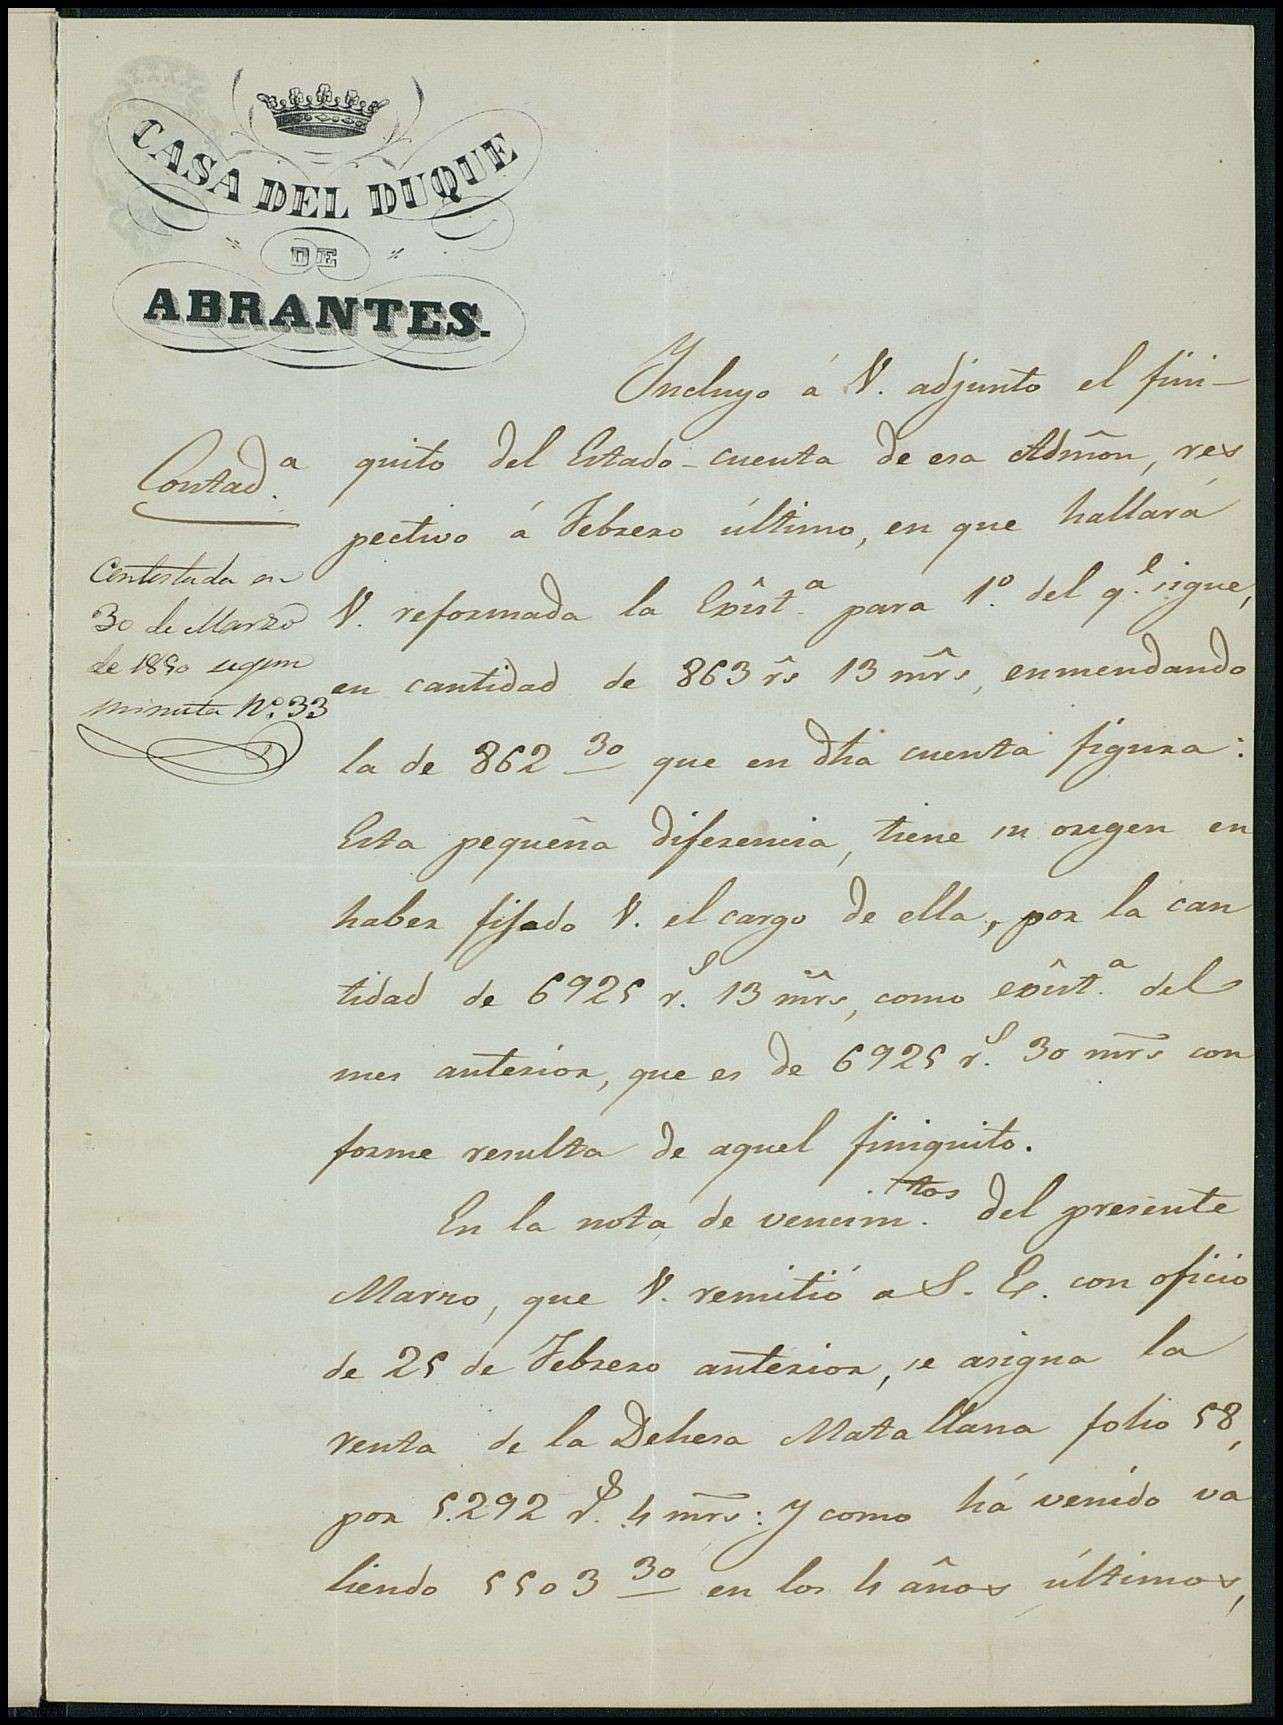 CASA DEL DUQUE
DE
ABRANTES.
Incluyo á V. adjunto el fini-
Contad.ª
quito del Estado-cuenta de esa Admôn, res
pectivo á Febrero último, en que hallará
V. reformada la Exîst.ª para 1.º del q.e sigue,
en cantidad de 863 r̂s 13 mr̂s, enmendando
la de 862 30 que en dha cuenta figura:
Esta pequeña diferencia, tiene su origen en
haber fijado V. el cargo de ella, por la can
tidad de 6925 r.s 13 mr̂s, como exîst.ª del
mes anterior, que es de 6925 r.s 30 mr̃s con
forme resulta de aquel finiquito.
En la nota de vencim.tos del presente
Marzo, que V. remitió a S. E. con oficio
de 25 de Febrero anterior, se asigna la
renta de la Dehesa Matallana folio 58,
por 5.292 r.s 4 mr̃s: Y como há venido va
liendo 5503 30 en los 4 años últimos,
Contestada en
30 de Marzo
de 1850 segun
minuta Nº. 33